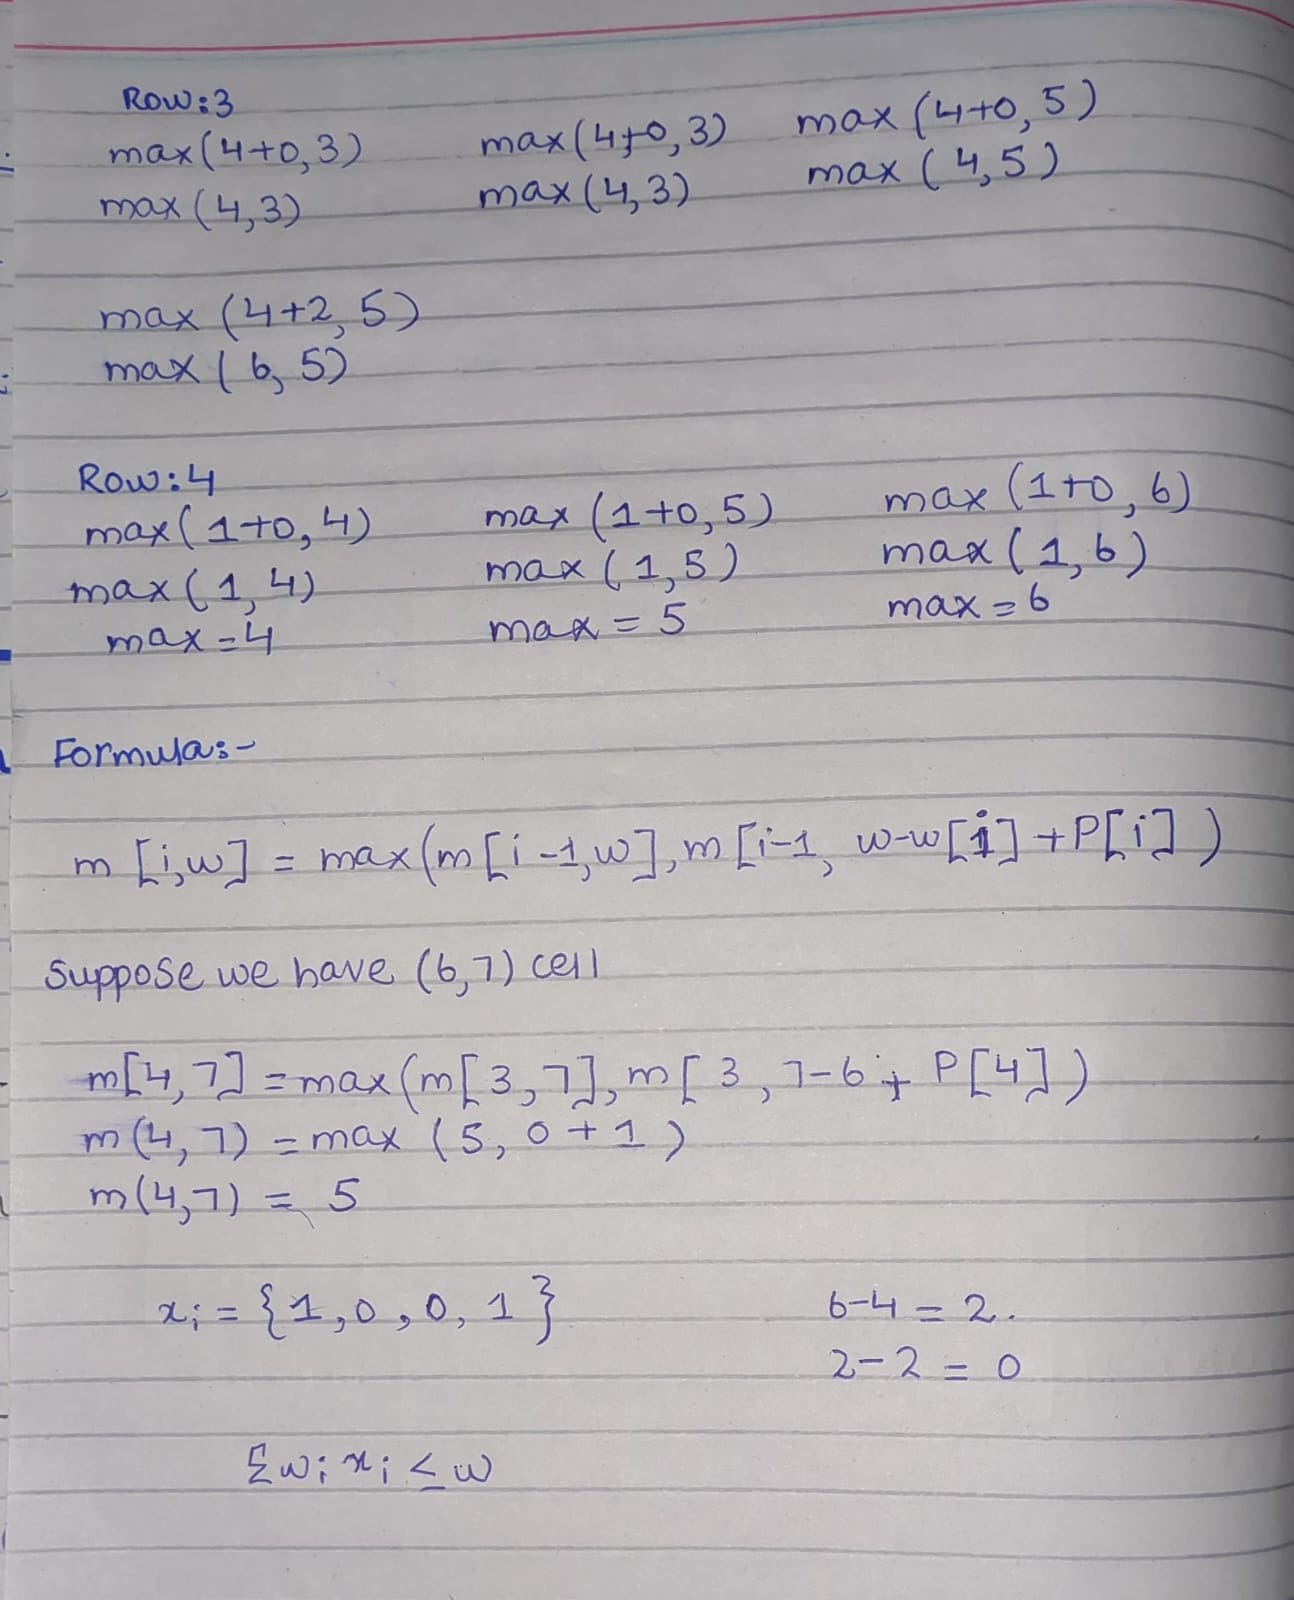 Row:3
max(4+0,3) max(4+0,3) max(4+0,5)
max(4,3) max(4,3) max(4,5)
max(4+2,5)
max(6,5)
Row:4
max(1+0,4) max(1+0,5) max(1+0,6)
max(1,4) max(1,5) max(1,6)
max=4 max=5 max=6
Formula:-
m[i,w] = max(m[i-1,w],m[i-1, w-w[i]+P[i])
Suppose we have (6,7) cell
m[4,7] =max(m[3,7],m[3,7-6+P[4])
m(4,7) =max(5,0+1)
m(4,7) = 5
xi = {1,0,0,1} 6-4=2.
2-2=0
Σwixi≤w